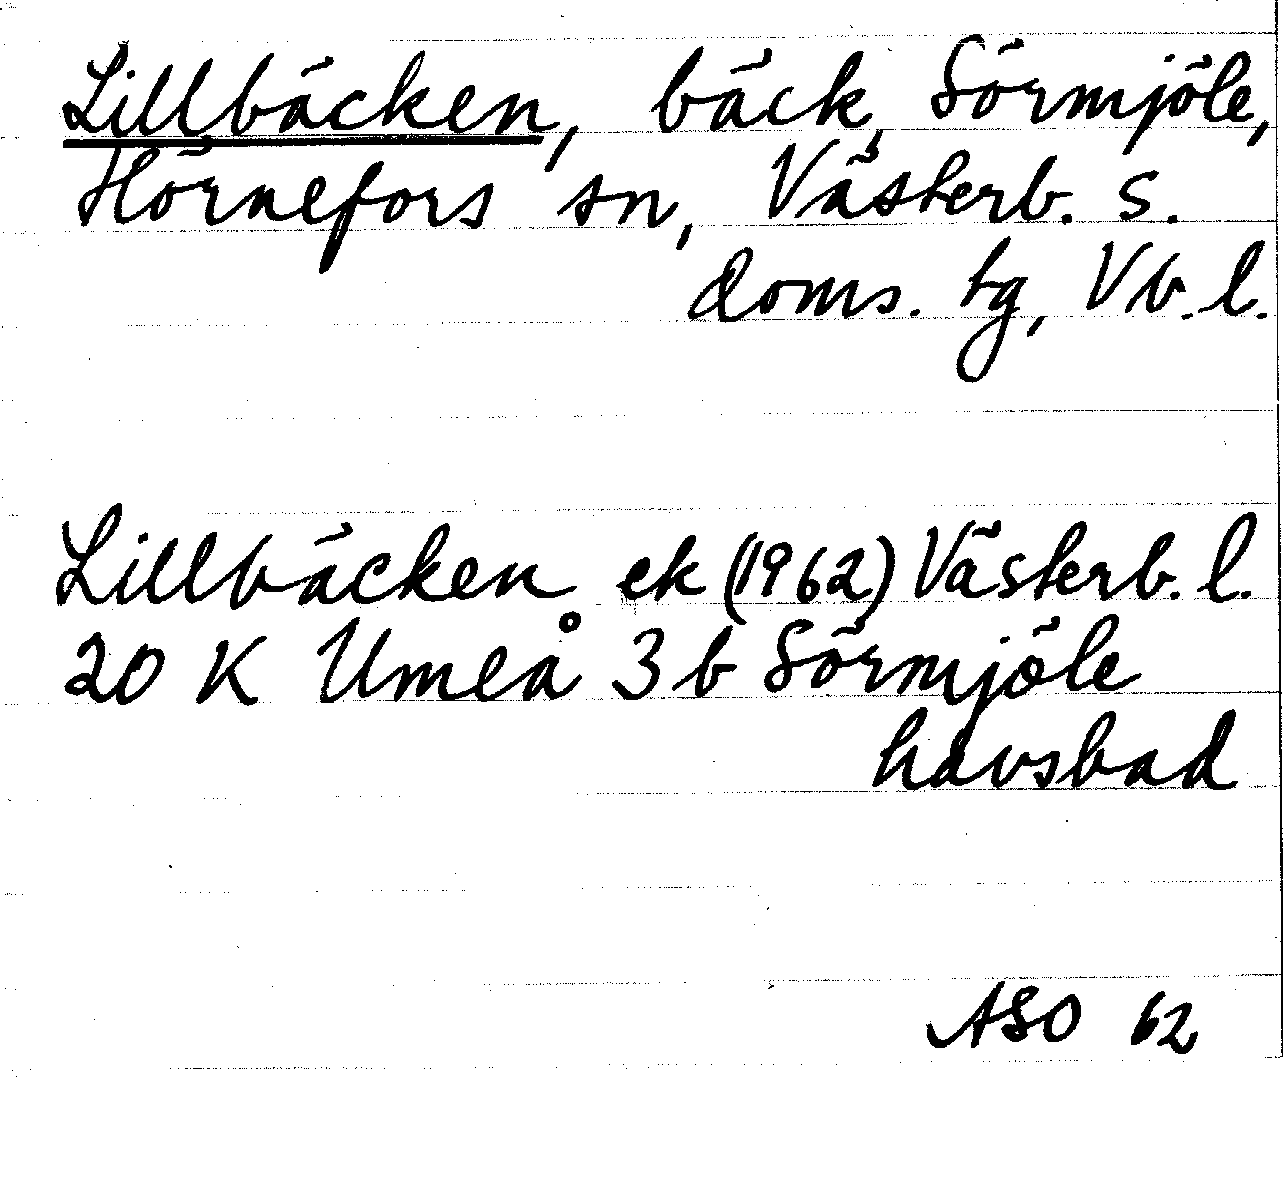 Lillbäcken, bäck, Sörmjöle,
Hörnefors sn, Västerb. s.
doms. tg, Vb. l.
Lillbäcken ek (1962) Västerb. l.
20 K Umeå 3 b Sörmjöle
havsbad
ASO 62